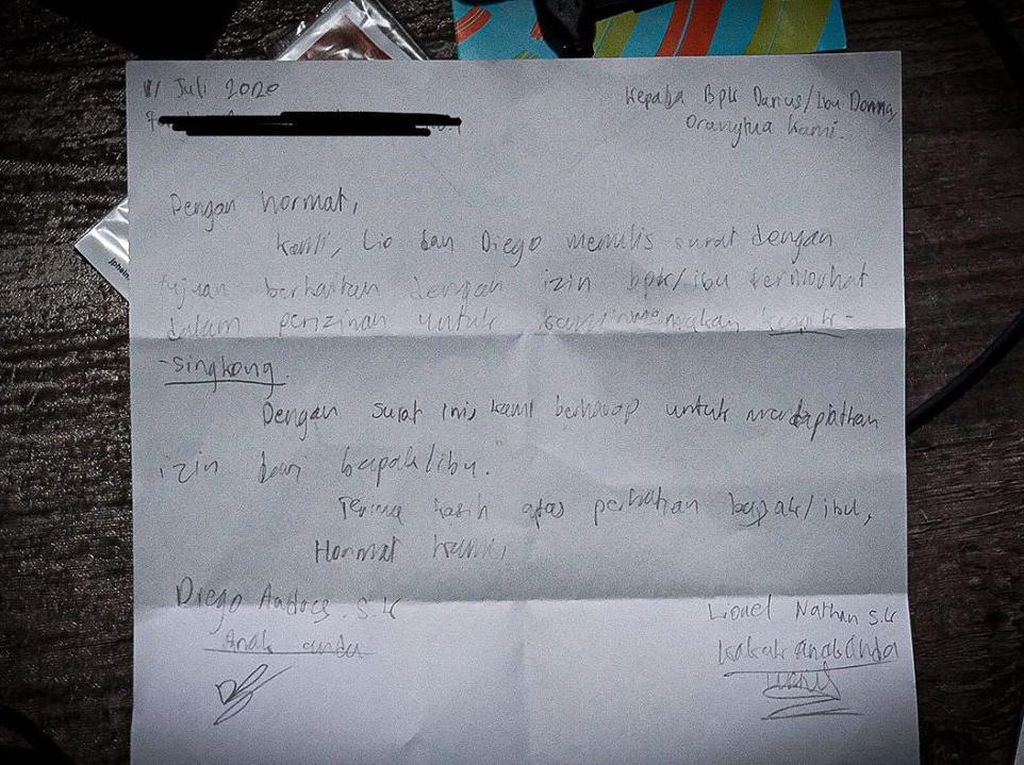 11 Juli 2020
Kepada Bpk Darius/Ibu Donna,
Orangtua Kami.
Dengan hormat,
Kami, Lio dan Diego menulis surat dengan
tujuan berkaitan dengan izin bpk/ibu
dalam perizinan untuk memakan keripik-
-singkong.
Dengan surat ini, kami berharap untuk mendapatkan
izin dari bapak/ibu.
Terima kasih atas perhatian bapak/ibu,
Hormat kami,
Diego S.K
Anak anda
Lionel Nathan S.K
Kakak anak Anda